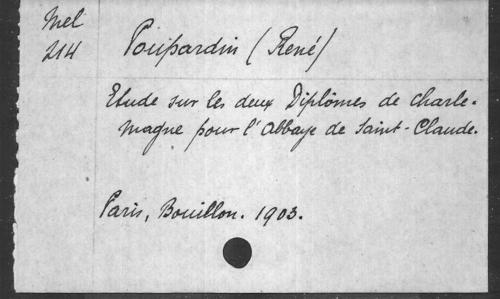 Mel
214
Poupardin (René)
Etude sur les deux Diplômes de Charle-
magne pour l'Abbaye de Saint-Claude.
Paris, Bouillon. 1903.